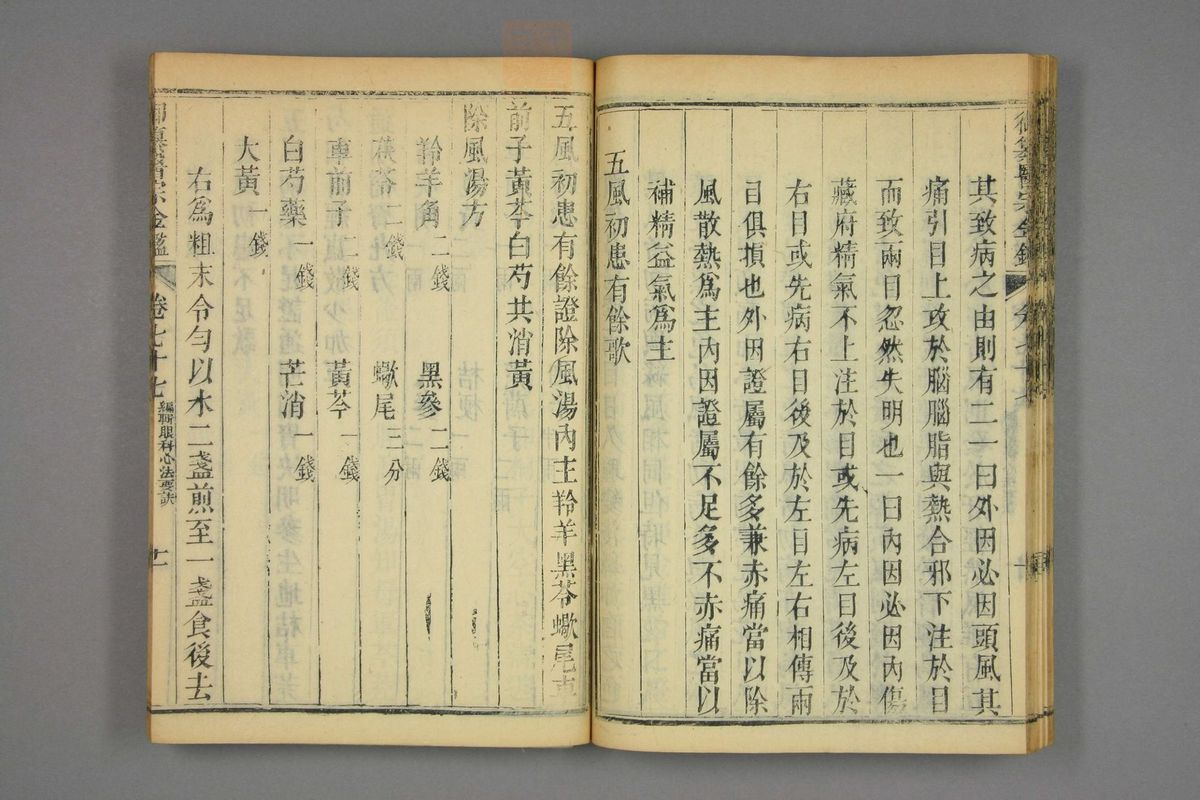 其致病之由則有二一曰外因必因頭風其
痛引目上攻於腦腦脂與熱合邪下注於目
而致兩目忽然失明也一曰內因必因內傷
藏府精氣不上注於目或先病左目後及於
右目或先病右目後及於左目左右相傳兩
目俱損也外因證屬有餘多兼赤痛當以除
風散熱爲主內因證屬不足多不赤痛當以
補精益氣爲主
五風初患有餘歌
五風初患有餘證除風湯內主羚羊黑苓蠍尾車
前子黃芩白芍共消黃
除風湯方
羚羊角二錢 黑參二錢
茯苓二錢 蠍尾三分
車前子一錢 黃芩一錢
白芍藥一錢 芒消一錢
大黃一錢
右爲粗末令勻以水二盞煎至一盞食後去
御纂醫宗金鑑 卷七十七 編輯眼科心法要訣 十一